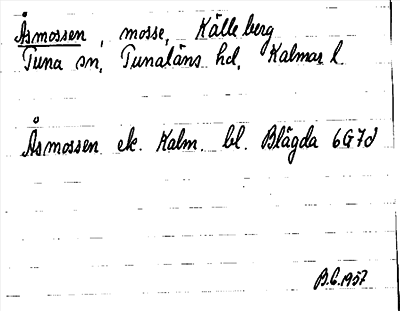 Åsmossen, mosse, Källeberg
Tuna sn, Tunaläns hd, Kalmar l.
Åsmossen ek. Kalm. bl. Blägda 6G7d
B.G. 1957